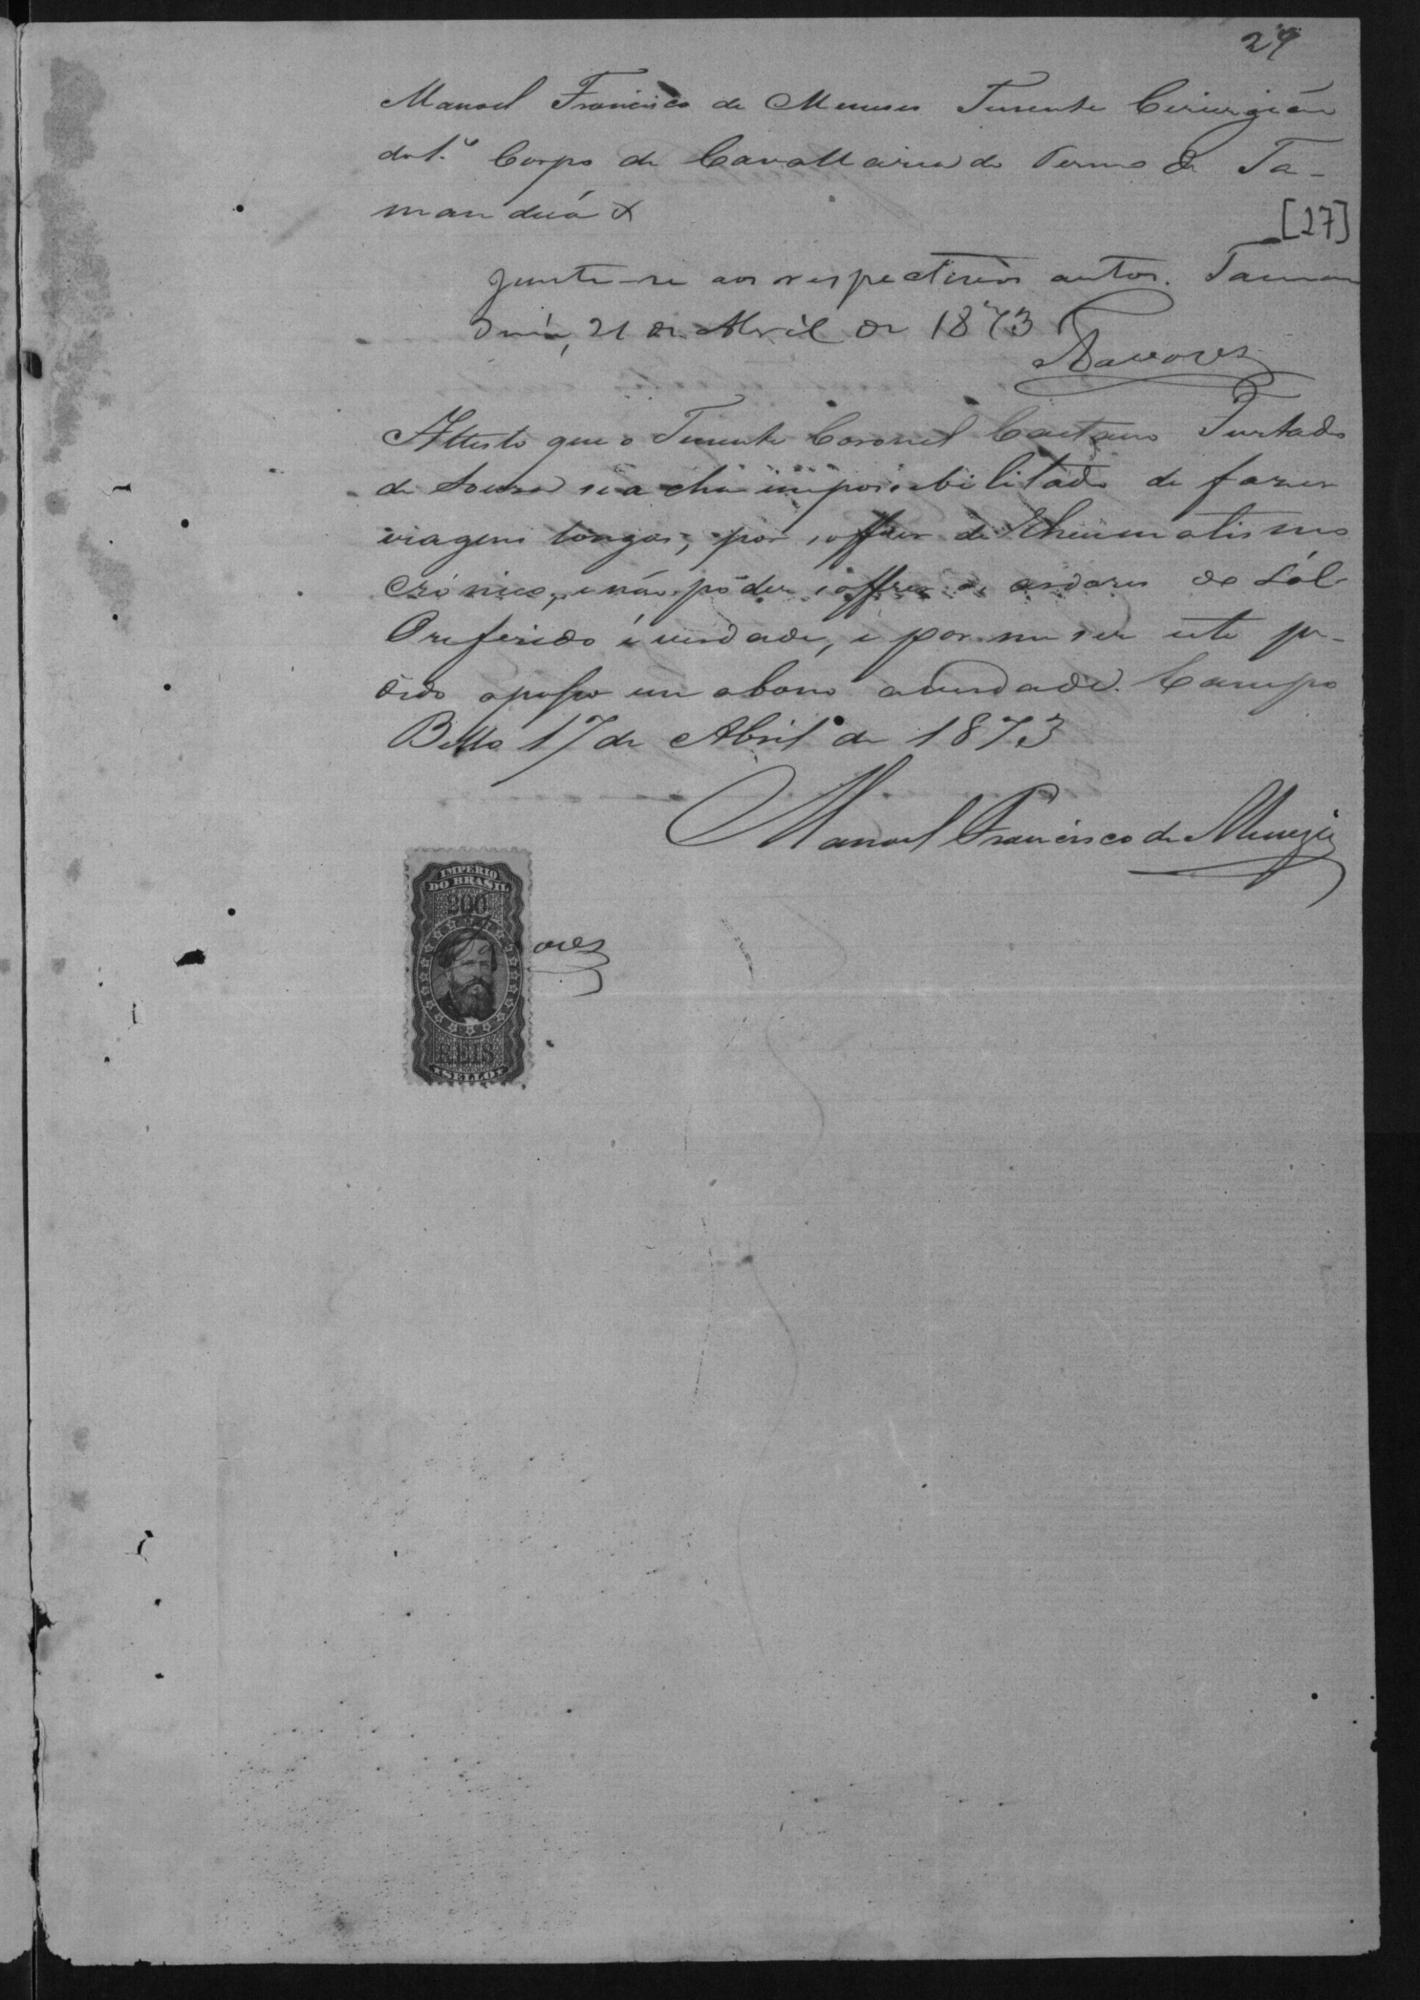 29
Manoel Francisco de Meneses Tenente Cirurgião
do 1.º Corpo de Cavallaria do Termo de Ta-
manduá
[27]
Junte-se aos respectivos autos. Taman
duá, 21 de Abril de 1873
Tavares
Attesto que o Tenente Coronel Caetano Furtado
de Souza se acha impossibilitado de fazer
viagens longas, por soffrer de Rheumatismo
crónico, e não póder soffrer os ardores do Sól
O referido é verdade, e por me ser este pe-
dido o posso em abono a verdade. Campo
Bello 17 de Abril de 1873
Manoel Francisco de Menezes
IMPERIO
DO BRASIL
200
Tavares
REIS
SELLO